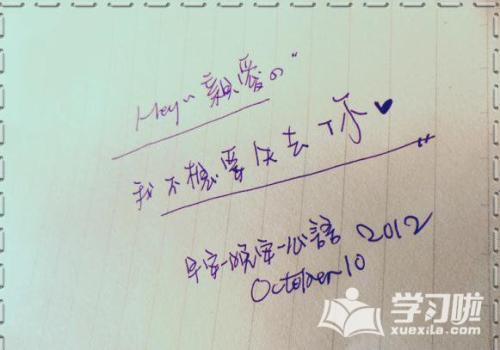 Hey~親愛の"
我不想要失去你♥
早安-晚安-心語 2012
October 10
学习啦
xuexila.com